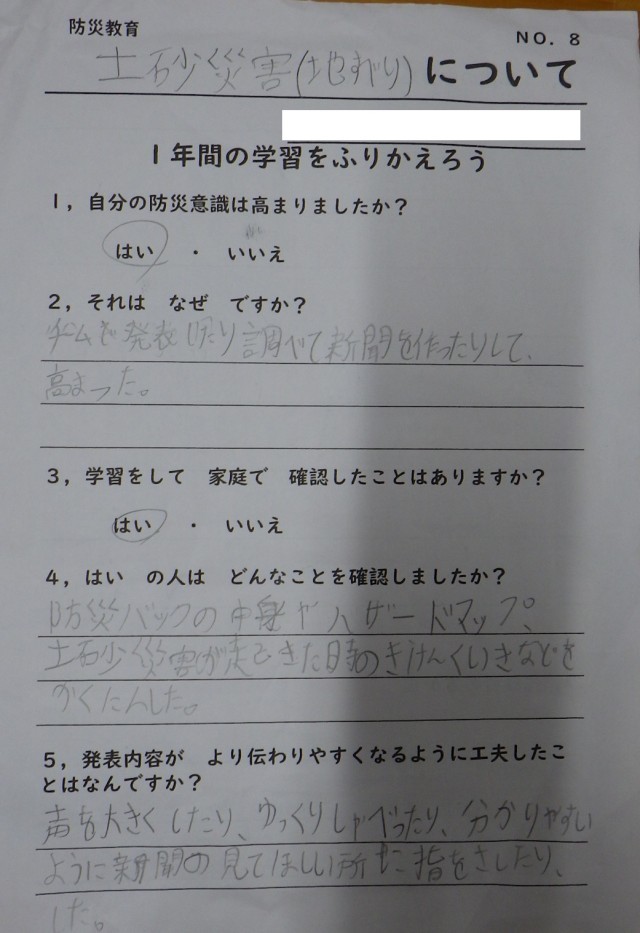 防災教育
NO. 8
土砂災害(地すべり)について
1年間の学習をふりかえろう
1，自分の防災意識は高まりましたか？
はい ・ いいえ
2，それは なぜ ですか？
発表したり調べて新聞を作ったりして、
高まった。
3，学習をして 家庭で 確認したことはありますか？
はい ・ いいえ
4，はい の人は どんなことを確認しましたか？
防災バックの中身やハザードマップ、
土砂災害が起きた時のきけんくいきなどを
かくにんした。
5，発表内容が より伝わりやすくなるように工夫したこ
とはなんですか？
声を大きくしたり、ゆっくりしゃべったり、分かりやすい
ように新聞の見てほしい所に指をさしたり、
した。